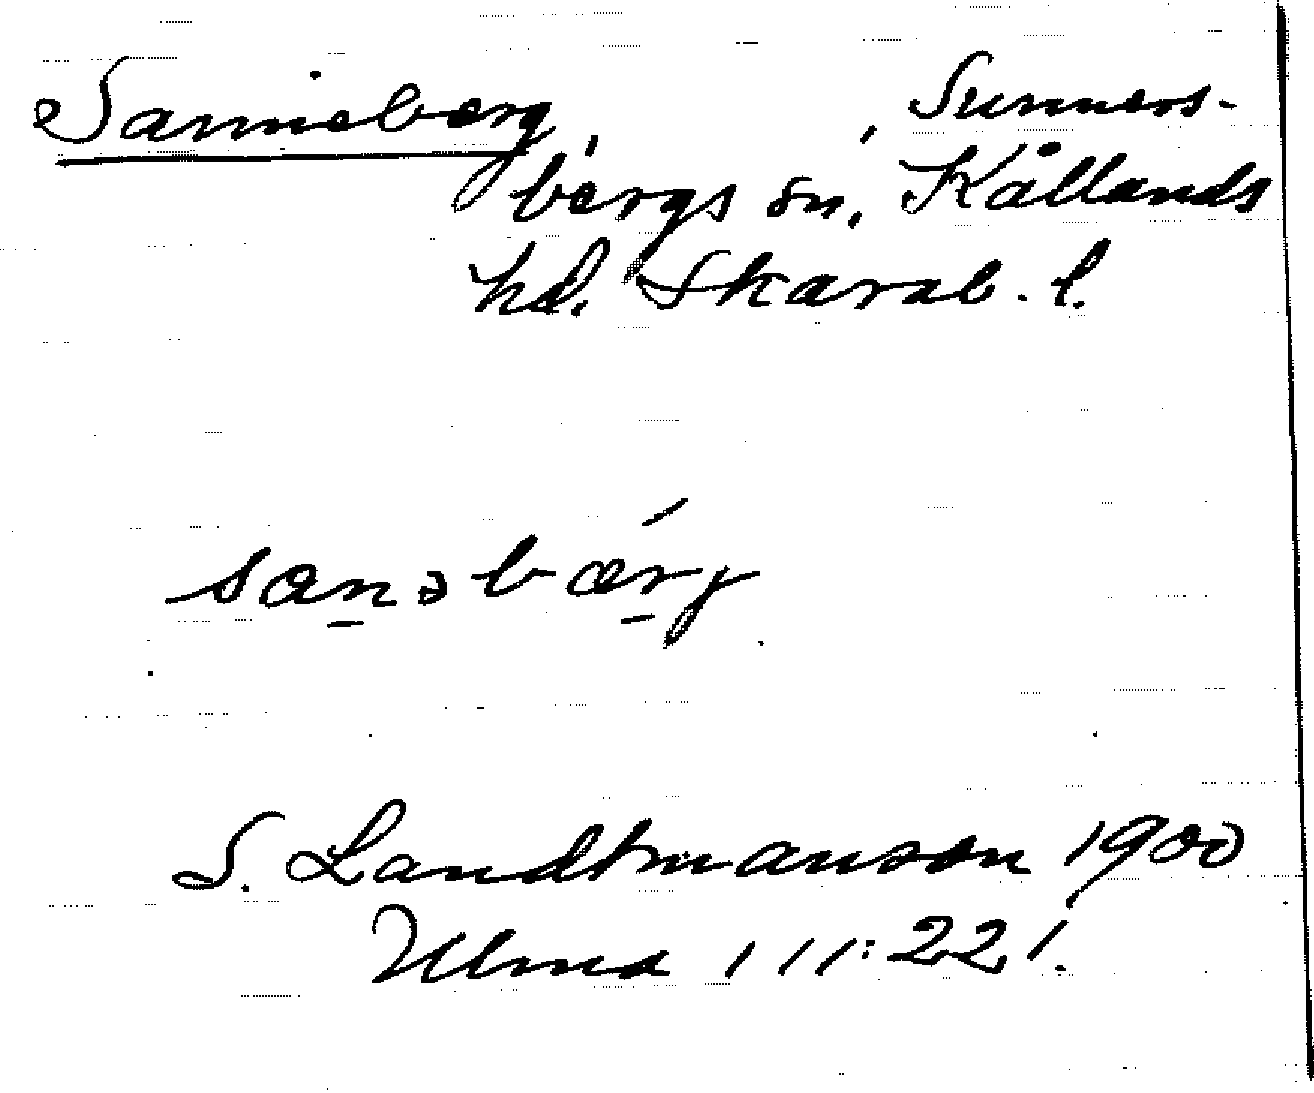 Sanneberg, Sunners-
bergs sn, Kållands
hd. Skarab. l.
sanəbærj
S. Landtmanson 1900
Ulma 111:221.